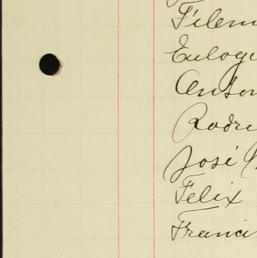 Filem
Eulogi
Anton
Rodri
José
Felix
Franci